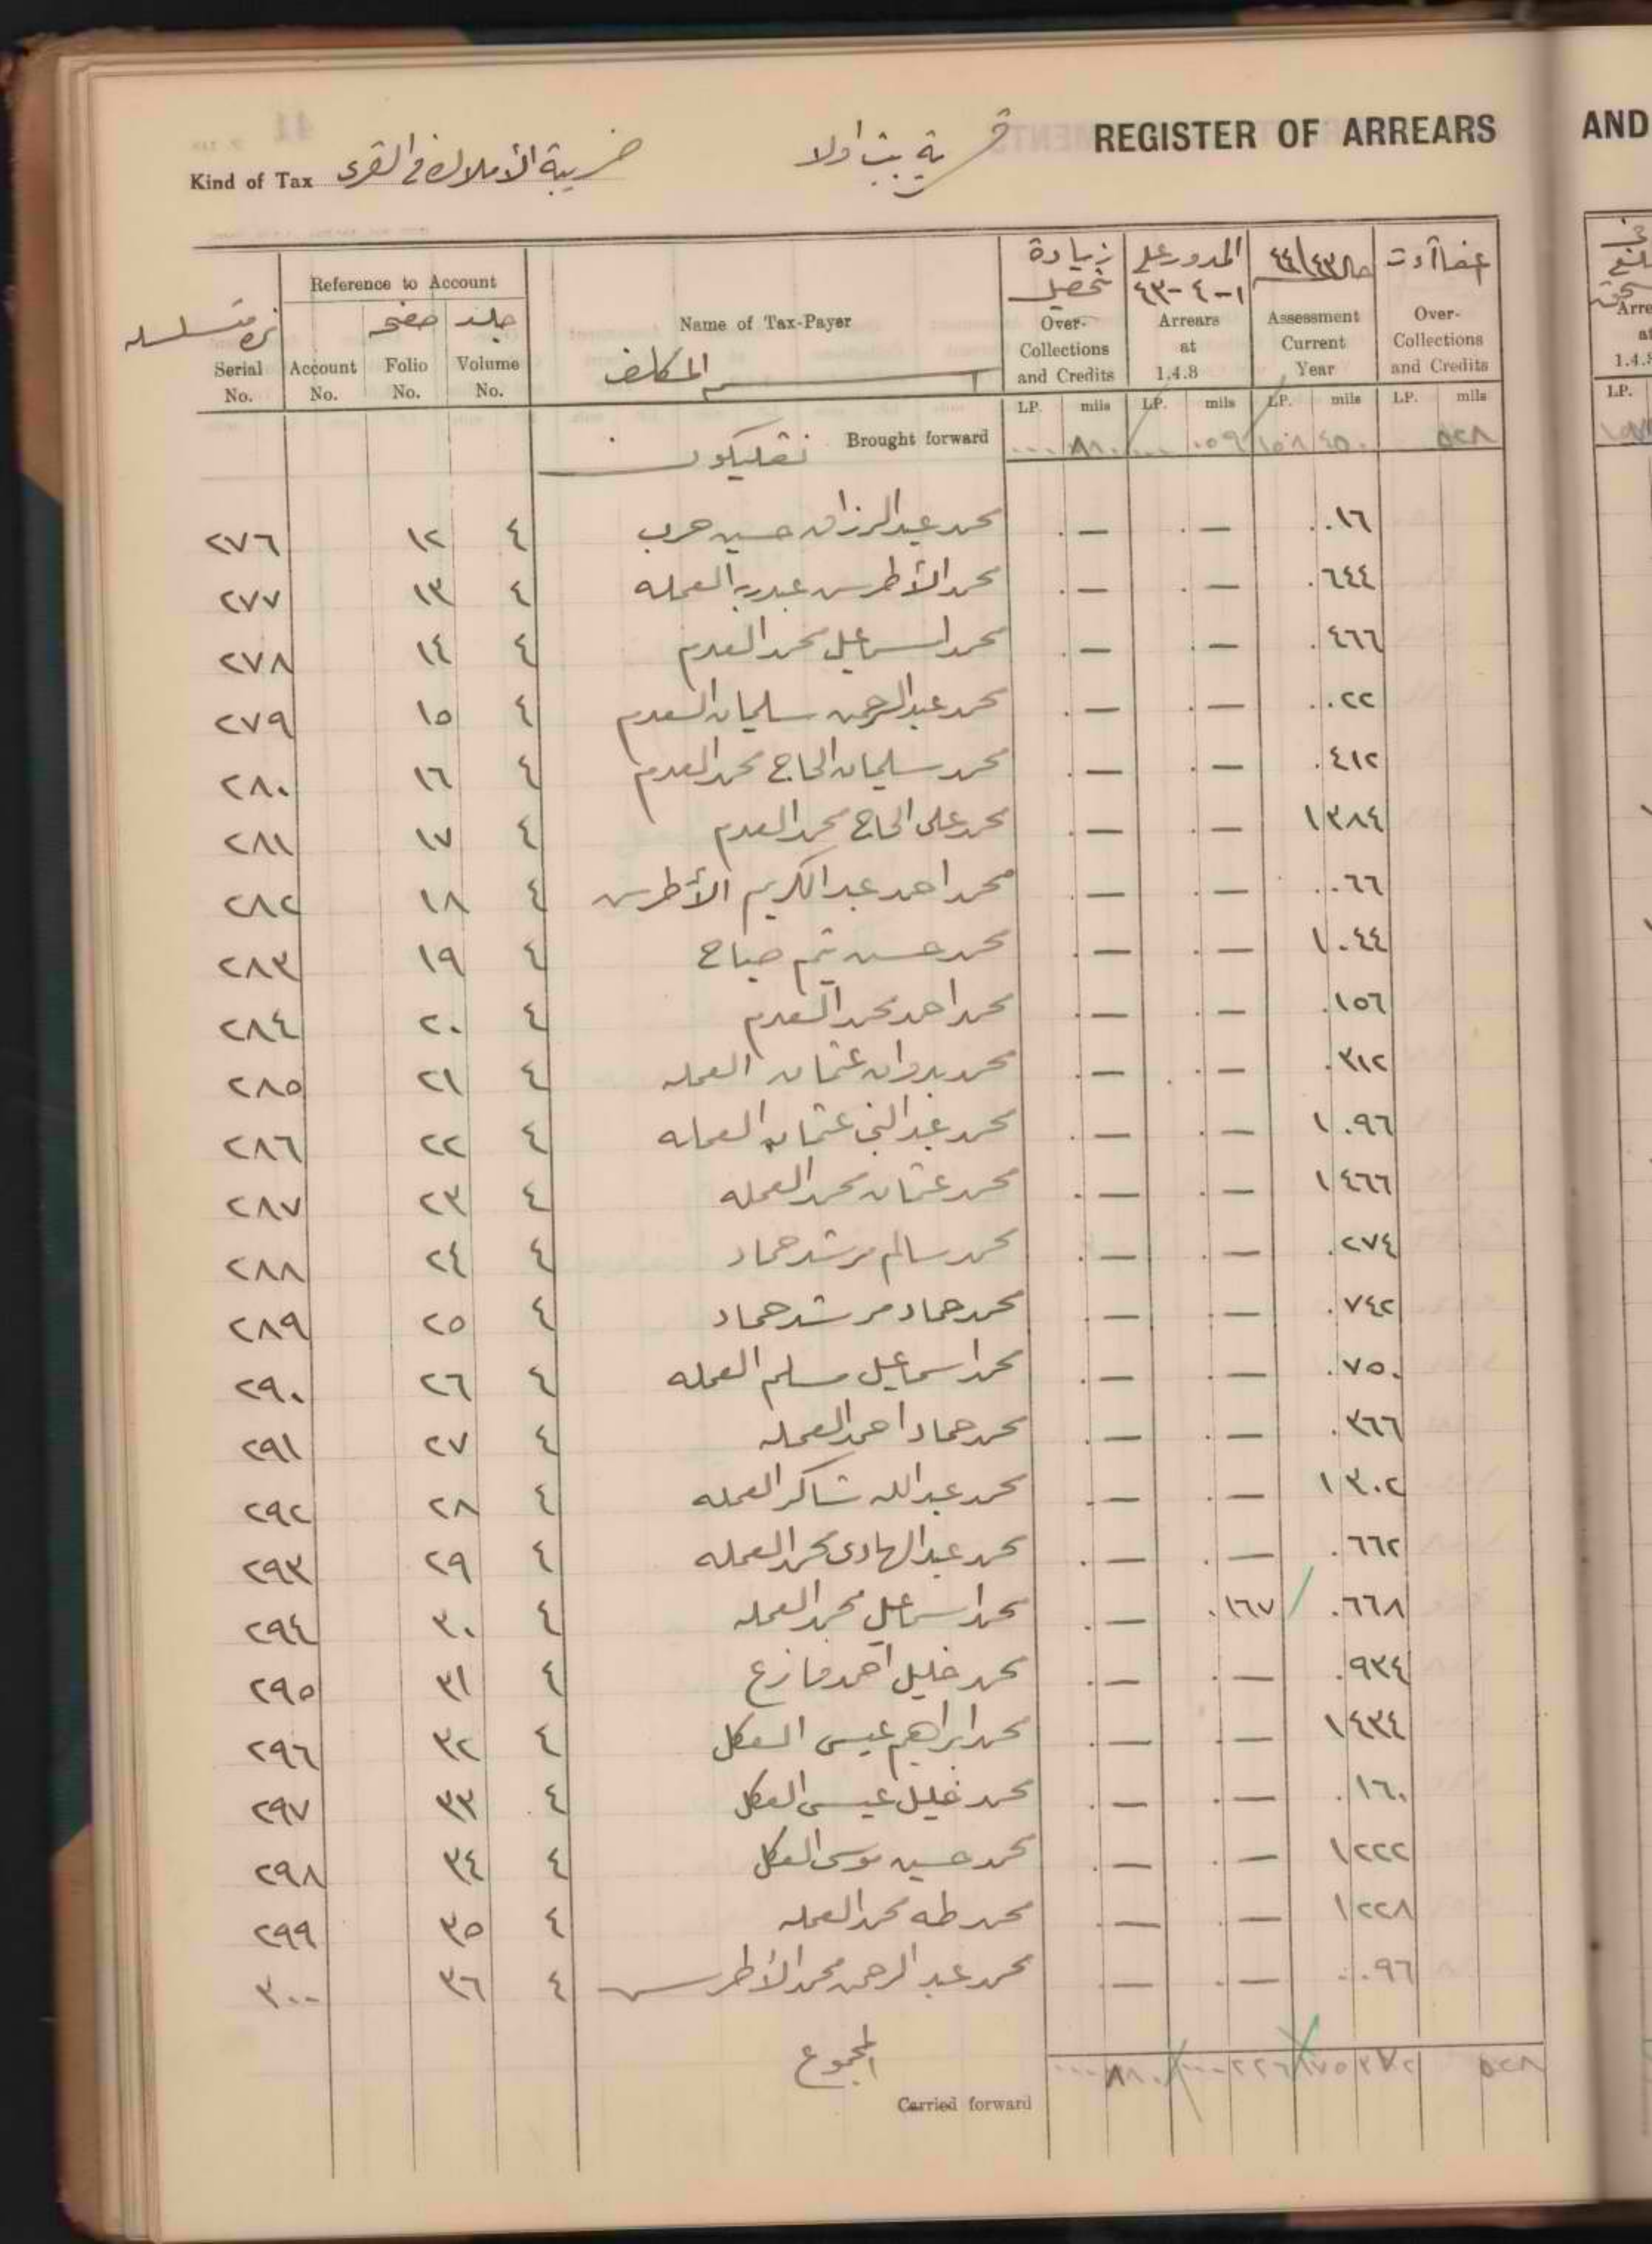 REGISTER OF ARREARS
AND
قرية بيت اولا
Kind of Tax ضريبة الأملاك في القرى
Reference to Account
زيادة تحصيل
المدور على ١-٤-٤٣
٤٤/٤٣
نمرة متسلسله
صفحه
جلد
Name of Tax-Payer
اسم المكلف
Serial No.
Account No.
Folio No.
Volume No.
Over-Collections and Credits
Arrears at 1.4.8
Assessment Current Year
Over-Collections and Credits
LP. mils LP. mils LP. mils LP. mils
Brought forward ٨٨٠ ٠٥٩ ١٥٨ ٤٥٠ ٥٢٨
٢٧٦ ١٢ ٤ محمد عبد الرزاق حسين حرب . — . — ..١٦
٢٧٧ ١٣ ٤ محمد الأطرس عبدربه العمله . — . — .٦٤٤
٢٧٨ ١٤ ٤ محمد اسماعيل محمد العدم . — . — .٤٦٦
٢٧٩ ١٥ ٤ محمد عبد الرحمن سليمان العدم . — . — ..٢٢
٢٨٠ ١٦ ٤ محمد سليمان الحاج محمد العدم . — . — .٤١٢
٢٨١ ١٧ ٤ محمد على الحاج محمد العدم . — . — ١٣٨٤
٢٨٢ ١٨ ٤ محمد احمد عبد الكريم الأطرس . — . — ..٦٦
٢٨٣ ١٩ ٤ محمد حسن يتيم صباح . — . — ١٠٤٤
٢٨٤ ٢٠ ٤ محمد احمد محمد العدم . — . — .١٥٦
٢٨٥ ٢١ ٤ محمد بدوان عثمان العمله . — . — .٣١٢
٢٨٦ ٢٢ ٤ محمد عبد النبي عثمان العمله . — . — ١٠٩٦
٢٨٧ ٢٣ ٤ محمد عثمان محمد العمله . — . — ١٤٦٦
٢٨٨ ٢٤ ٤ محمد سالم مرشد حماد . — . — .٢٧٤
٢٨٩ ٢٥ ٤ محمد حماد مرشد حماد . — . — .٧٤٢
٢٩٠ ٢٦ ٤ محمد اسماعيل مسلم العمله . — . — .٧٥٠
٢٩١ ٢٧ ٤ محمد حماد احمد العمله . — . — .٣٦٦
٢٩٢ ٢٨ ٤ محمد عبدالله شاكر العمله . — . — ١٣٠٢
٢٩٣ ٢٩ ٤ محمد عبد الهادى محمد العمله . — . — .٦٦٢
٢٩٤ ٣٠ ٤ محمد اسماعيل محمد العمله . — .١٦٧ .٦٦٨
٢٩٥ ٣١ ٤ محمد خليل احمد مازع . — . — .٩٣٤
٢٩٦ ٣٢ ٤ محمد ابراهيم عيسى العكل . — . — ١٤٣٤
٢٩٧ ٣٣ ٤ محمد خليل عيسى العكل . — . — .١٦٠
٢٩٨ ٣٤ ٤ محمد حسين موسى العكل . — . — ١٢٢٢
٢٩٩ ٣٥ ٤ محمد طه محمد العمله . — . — ١٢٢٨
٣٠٠ ٣٦ ٤ محمد عبد الرحمن محمد الأطرس — . — ..٩٦
المجموع
Carried forward ٨٨٠ ٢٢٦ ١٧٥ ٣٧٢ ٥٢٨
Arre
1.4.
LP.